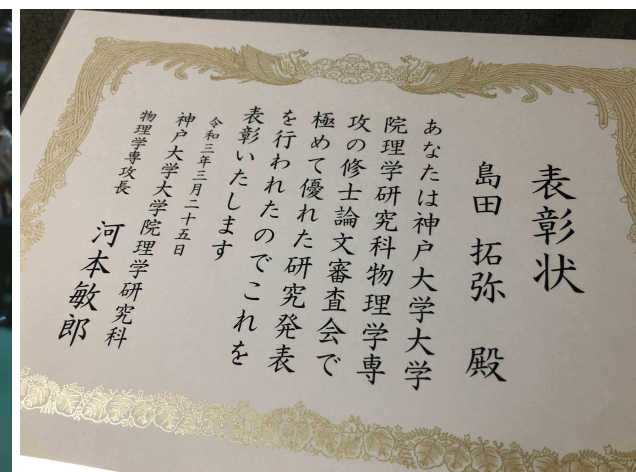 表彰状
島田 拓弥 殿
あなたは神戸大学大学
院理学研究科物理学専
攻の修士論文審査会で
極めて優れた研究発表
を行われたのでこれを
表彰いたします
令和三年三月二十五日
神戸大学大学院理学研究科
物理学専攻長 河本敏郎